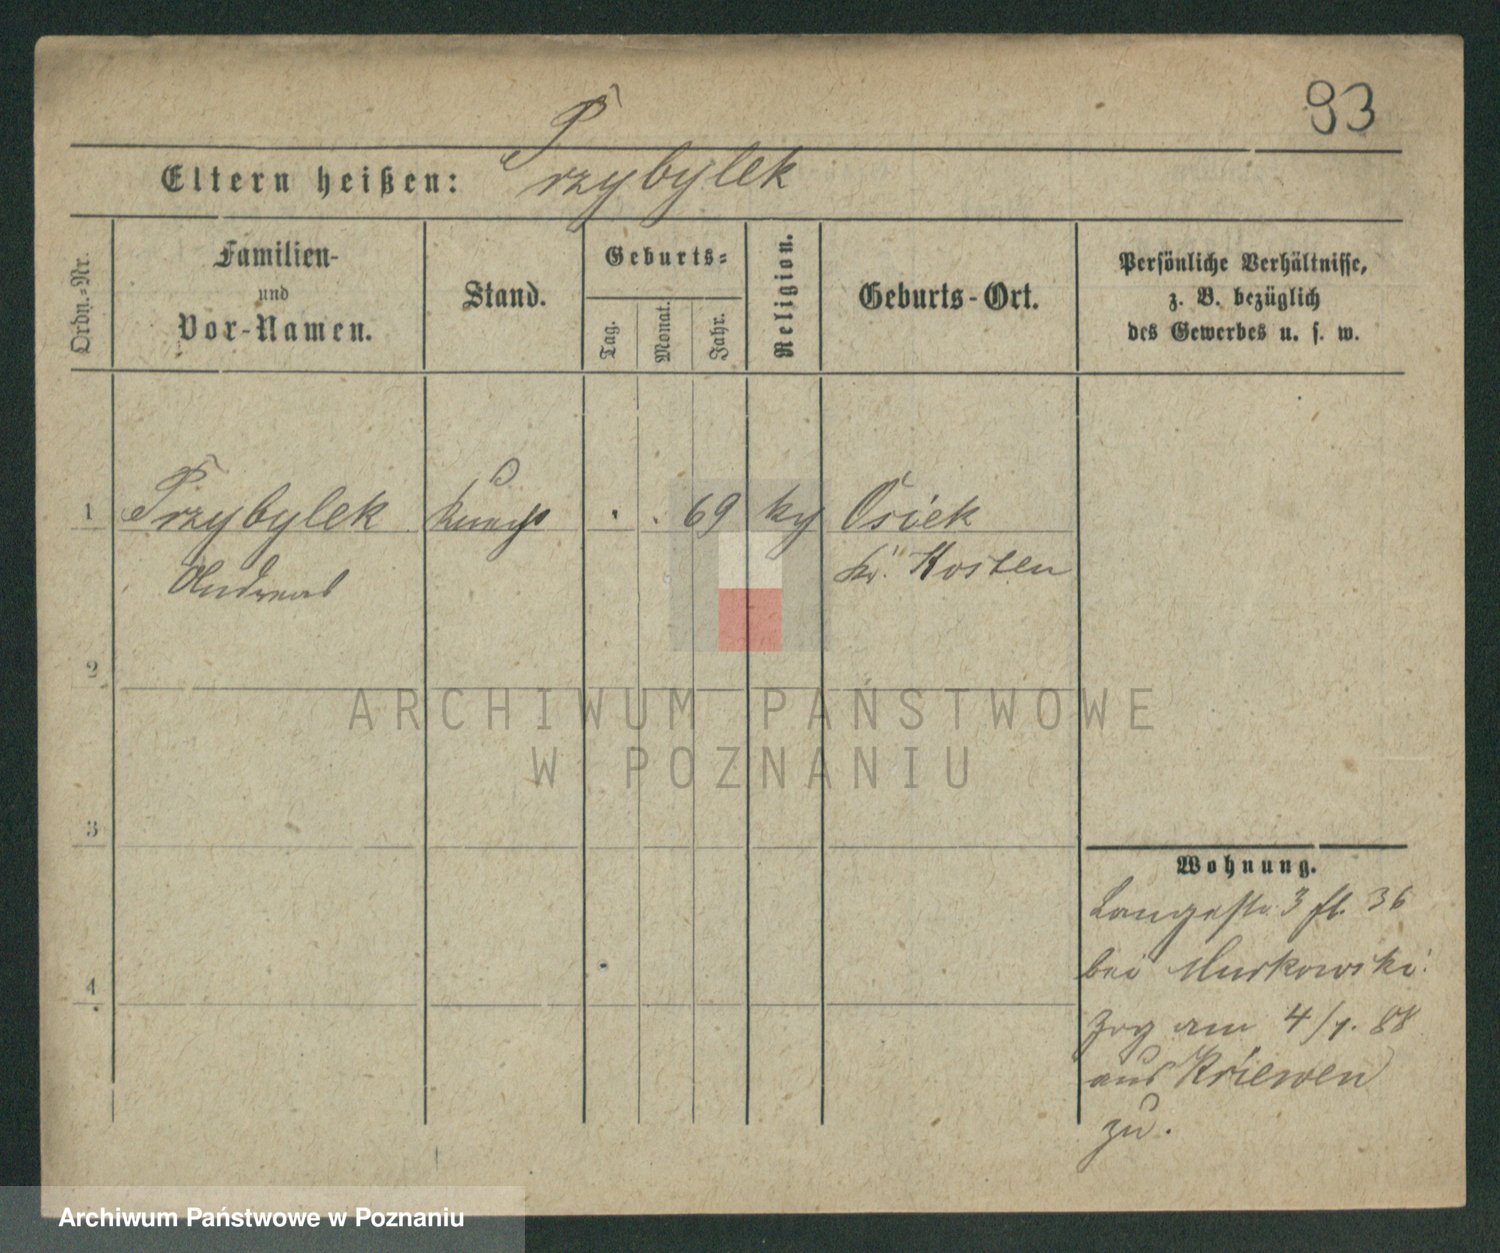 93
Eltern heißen: Przybylek
Ordn.-Nr.
Familien-
und
Vor-Namen.
Stand.
Geburts-
Tag.
Monat.
Jahr.
Religion.
Geburts-Ort.
Persönliche Verhältnisse,
z. B. bezüglich
des Gewerbes u. s. w.
1 Przybylek 69 Osiek
Andreas Kr. Kosten
2
3
4
Wohnung.
Langestr. 3 36
bei Murkowski
Zog am 4/1. 88
aus Kriewen
zu.
ARCHIWUM PAŃSTWOWE
W POZNANIU
Archiwum Państwowe w Poznaniu